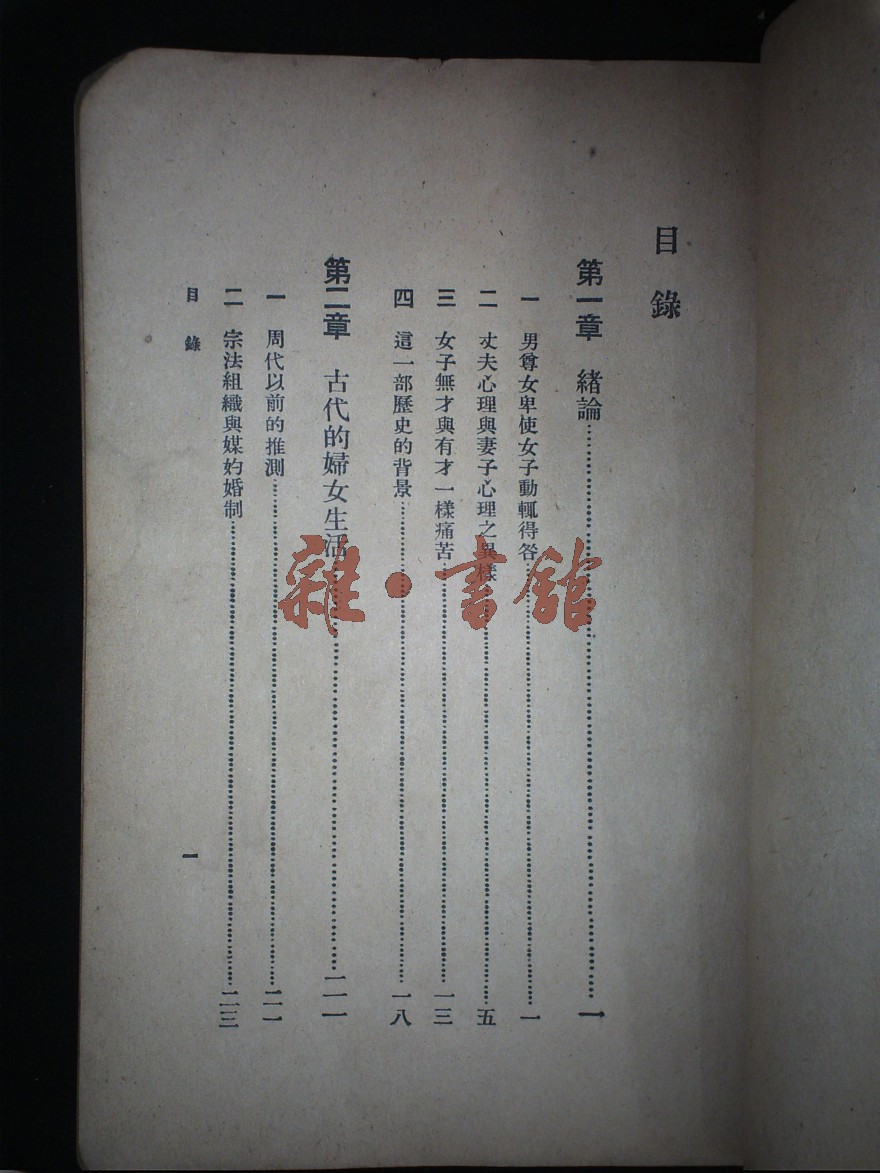 目錄
第一章 緒論……一
一 男尊女卑使女子動輒得咎……一
二 丈夫心理與妻子心理之異樣……五
三 女子無才與有才一樣痛苦……一三
四 這一部歷史的背景……一八
第二章 古代的婦女生活……二一
一 周代以前的推測……二一
二 宗法組織與媒妁婚制……二三
目錄 一
雜·書館